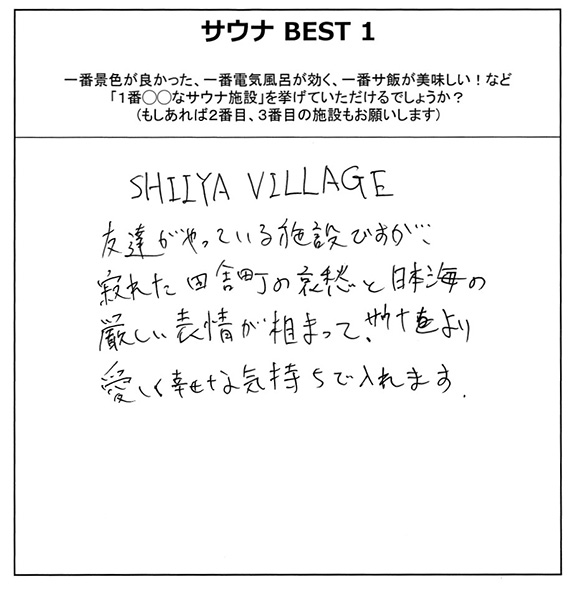 サウナ BEST 1
一番景色が良かった、一番電気風呂が効く、一番サ飯が美味しい！など
「１番◯◯なサウナ施設」を挙げていただけるでしょうか？
（もしあれば２番目、３番目の施設もお願いします）
SHIIYA VILLAGE
友達がやっている施設ですが、
寂れた田舎町の哀愁と日本海の
厳しい表情が相まって、サウナをより
愛しく幸せな気持ちで入れます.